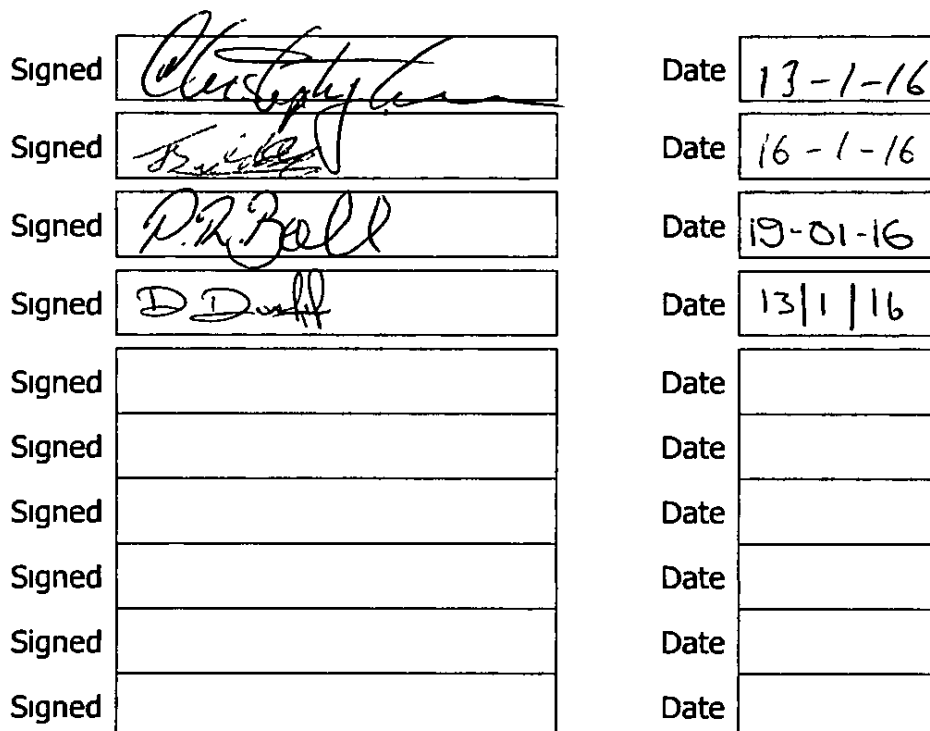 Signed Christopher Date 13-1-16
Signed Date 16-1-16
Signed P.R. Ball Date 19-01-16
Signed D Date 13/1/16
Signed Date
Signed Date
Signed Date
Signed Date
Signed Date
Signed Date